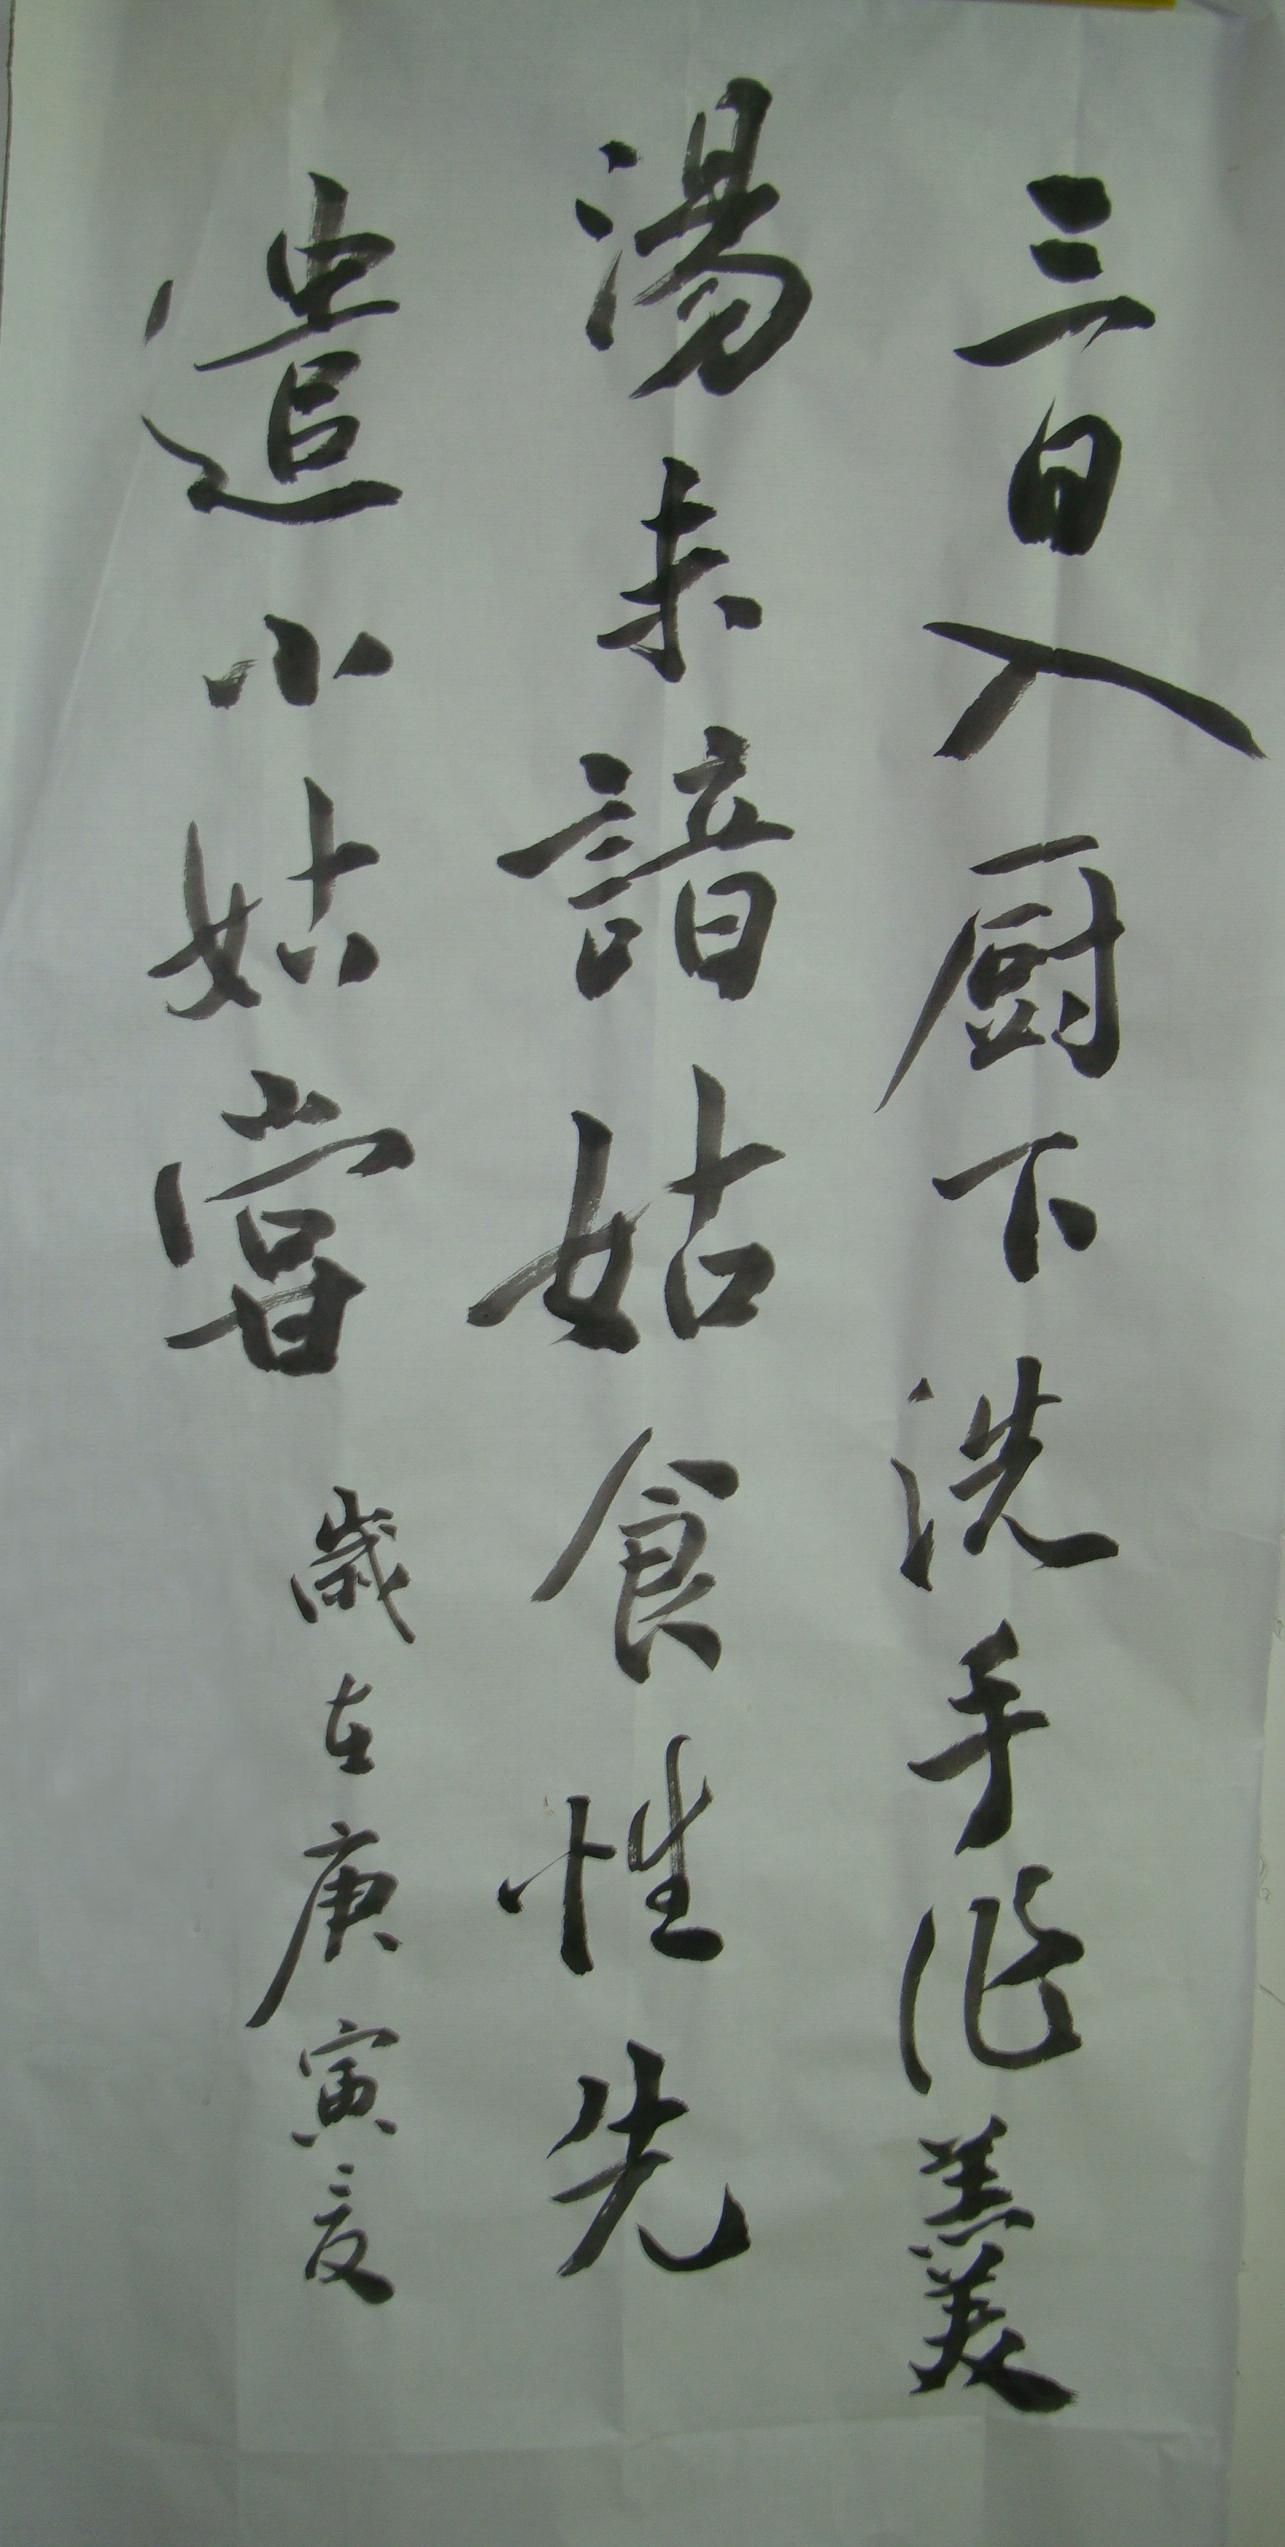 三日入厨下洗手作羹
湯未諳姑食性先
遣小姑嘗 歲在庚寅夏